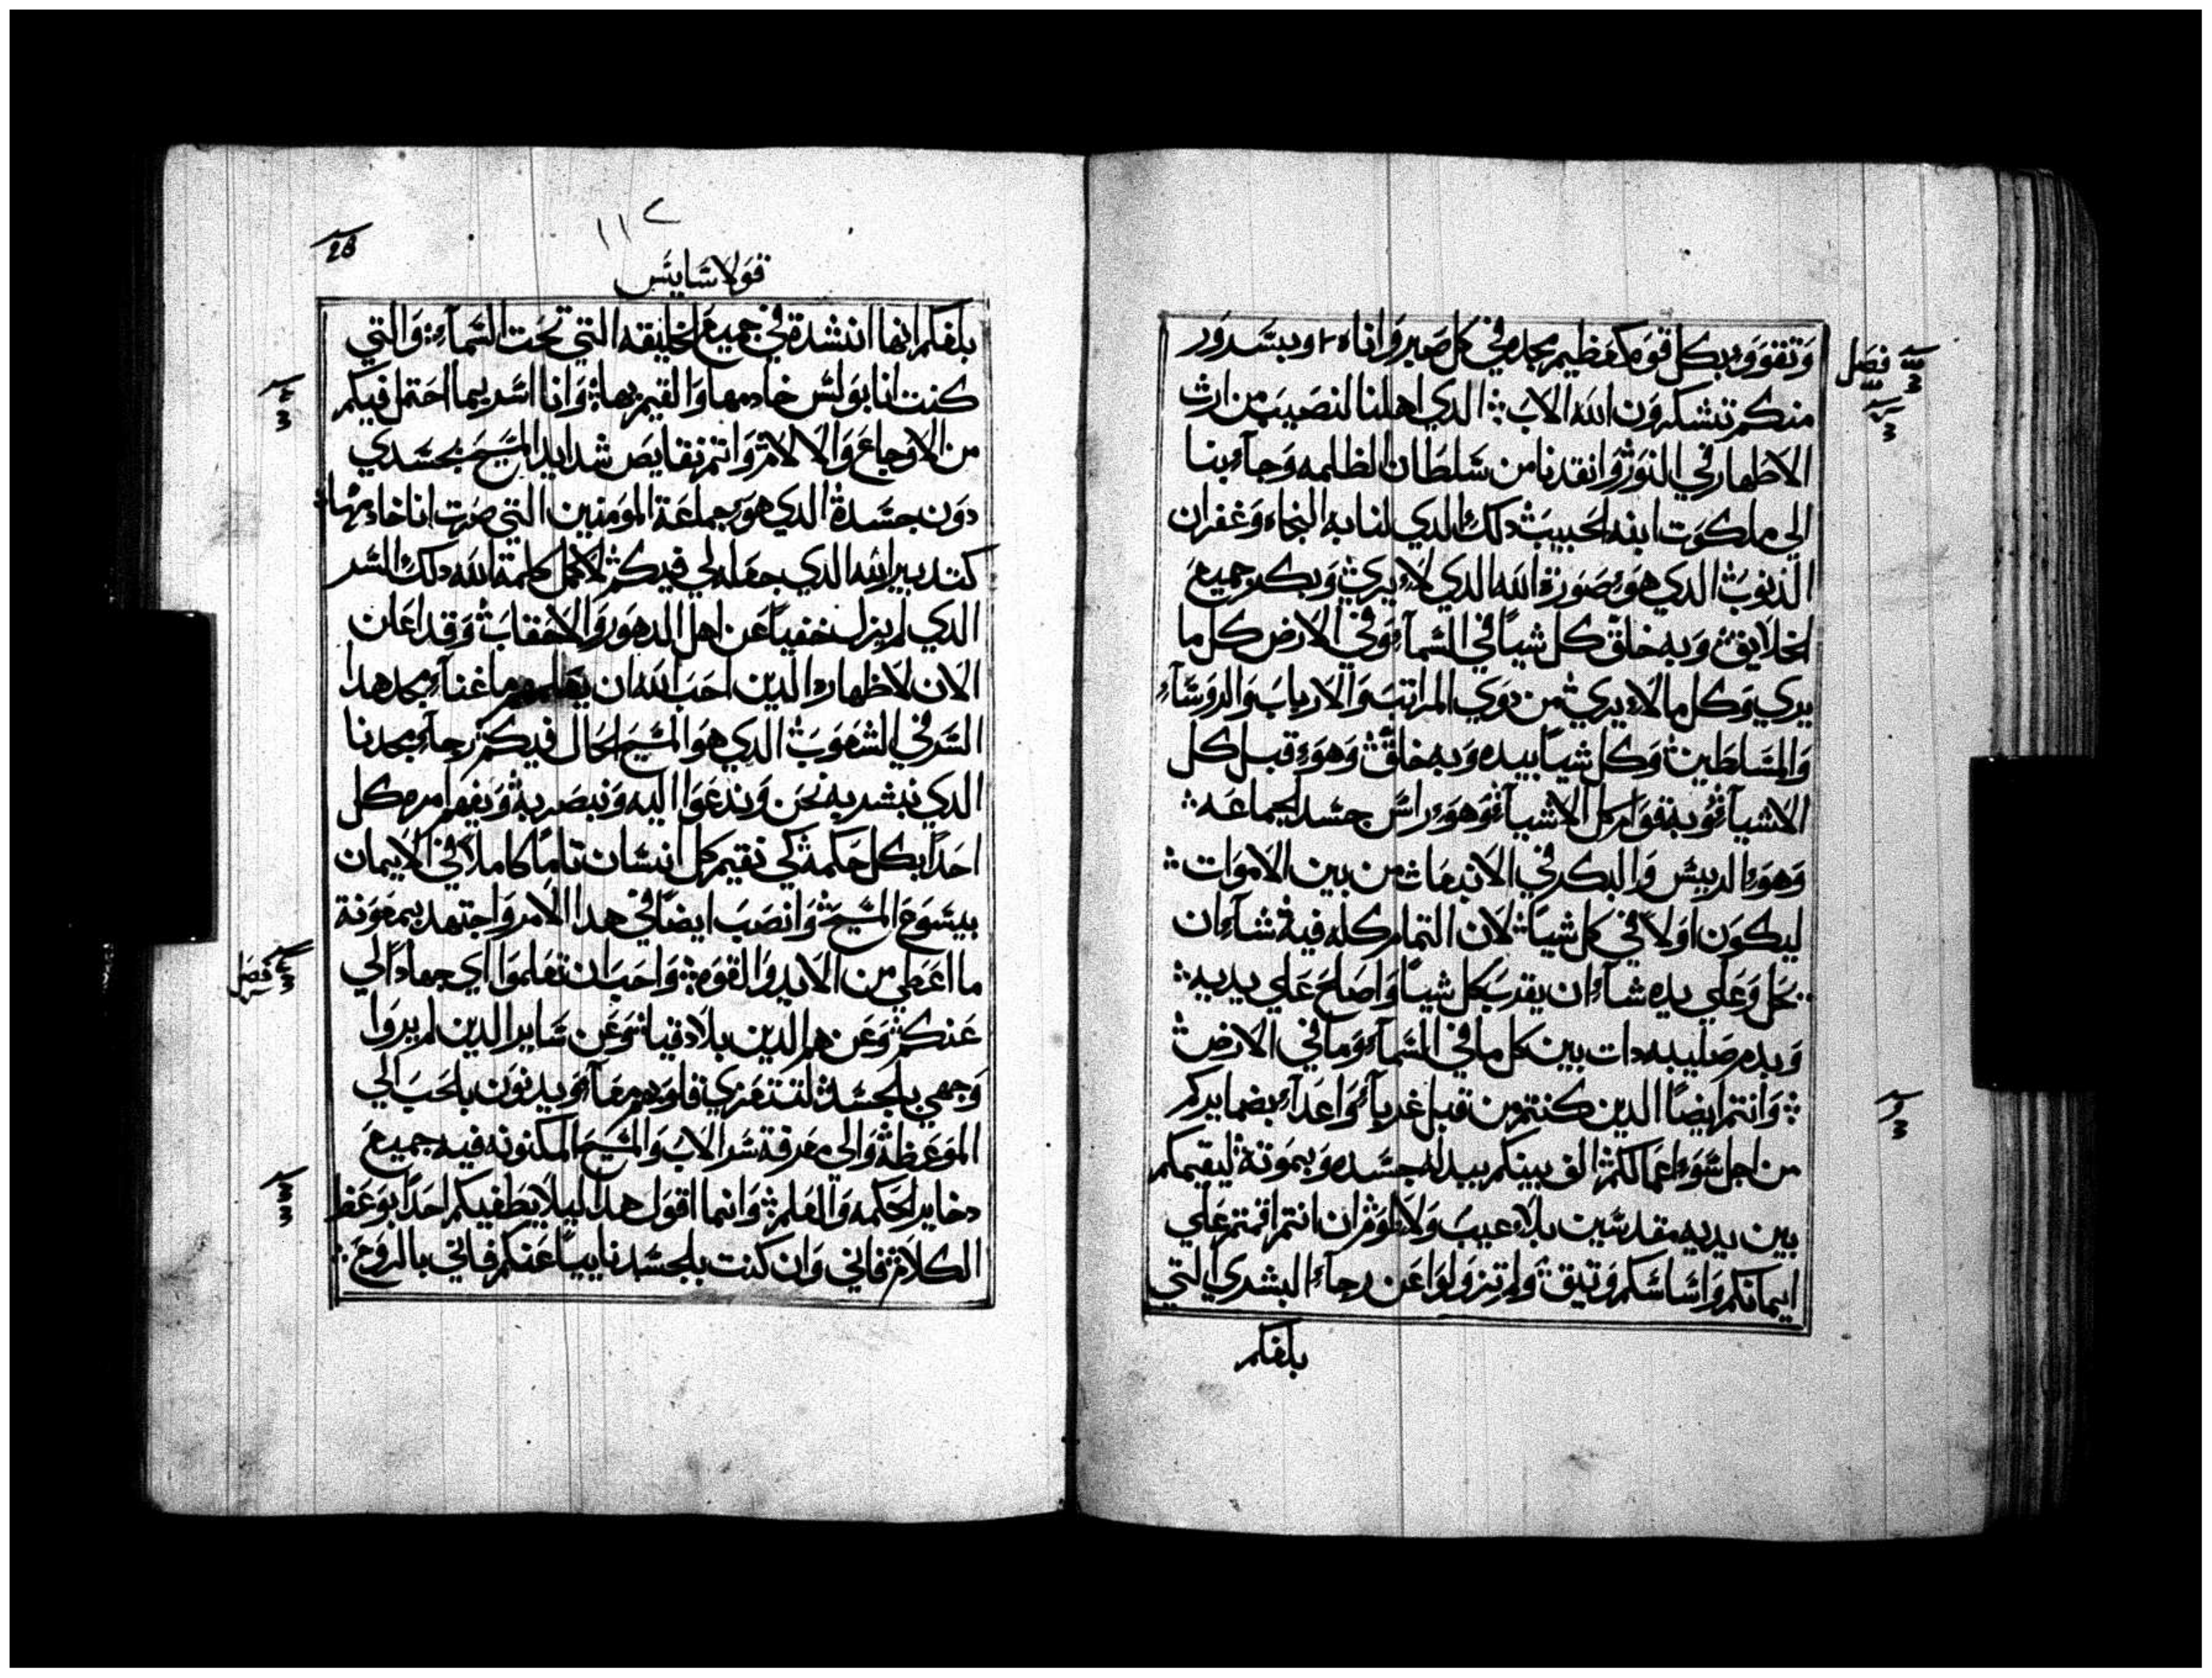 وتقووو بكل قوه كعظيم مجده في كل صبر واناه وبسرور
منكم تشكرون الله الاب الدي اهلنا لنصيب من ارث
الاطهار في النور وانقدنا من سلطان الظلمه وجاء بنا
الي ملكوت ابنه الحبيب دلك الدي لنا به النجاه وغفران
الذنوب الدي هو صورة الله الدي لا يري وبكر جميع
الخلايق وبه خلق كل شياً في السماء وفي الارض كل ما
يري وكل ما لا يري من دوي المراتب والارباب والروساء
والمسلطين وكل شياً بيده وبه خلق وهو قبل كل
الاشياء وبه قوام كل الاشياء وهو راس جسد الجماعه
وهو الرييس والبكر في الانبعاث من بين الاموات
ليكون اولاً في كل شياً لان التمام كله فيه شاء ان
يحل وعلي يده شاء ان يقرب كل شياً واصلح علي يديه
وبدم صليبه دات بين كل ما في السماء وما في الارض
وانتم ايضاً الدين كنتم من قبل غرباء واعداء بضمايركم
من اجل سوء اعمالكم الف بينكم ببدله جسده وبموته ليقيمكم
بين يديه مقدسين بلا عيب ولا لوم ان انتم اقمتم علي
ايمانكم واساسكم وتيق ولم تزولوا عن رجاء البشري التي
بلغكم
فصل
قولاسايس
بلغكم انها انشدة في جميع الخليقه التي تحت السماء والتي
كنت انا بولس خادمها والقيم بها وانا اسر بما احتمل فيكم
من الاوجاع والالام واتم نقايص شدايد المسيح بجسدي
دون جسدة الدي هو جماعة المومنين التي صرت انا خادمها
كتدبير الله الدي جعله لي فيكم لاكمل كلمة الله دلك السر
الدي لم يزل خفياً عن اهل الدهور والاحقاب وقد اعلن
الان لاظهاره الدين احب الله ان يعلمهم ما غناء مجد هدا
السر في الشعوب الدي هو المسيح الحال فيكم رجاء مجدنا
الدي نبشر به نحن وندعوا اليه ونبصر به ونفهم امره كل
احداً بكل حكمه كي نقيم كل انسان تاماً كاملاً في الايمان
بيسوع المسيح وانصب ايضاً في هدا الامر واجتهد بمعونة
ما اعطي من الايد والقوه واحب ان تعلموا اي جهاداً لي
عنكم وعن هم الدين بلادقيا وعن ساير الدين لم يروا
وجهي بلجسد لتتعزي قلوبهم معاً ويدنون بلحب الي
الموعظه والي معرفة سر الاب والمسيح المكنونه فيه جميع
دخاير الحكمه والعلم وانما اقول هدا ليلا يطغيكم احداً بوعظ
الكلام فاني وان كنت بلجسد ناييا عنكم فاني بالروح
فصل